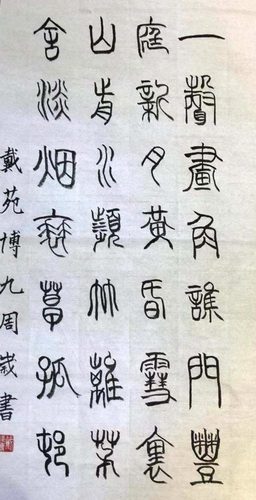 一聲畫角譙門豐
庭新月黃昏雪裏
山前水瀕竹籬茅
舍淡烟衰草孤邨
戴苑博九周歲書